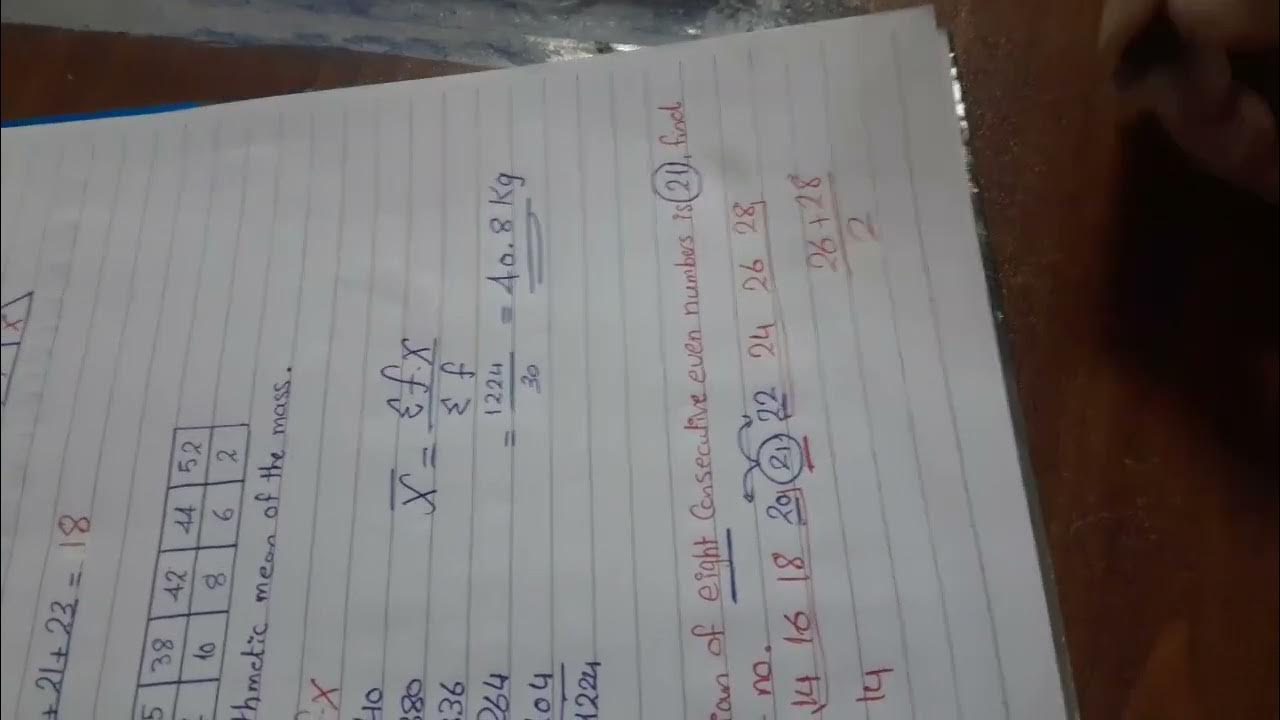 x
+ 21 + 23 = 18
5 38 42 44 52
10 8 6 2
thmetic mean of the mass.
x
40
380
336
264
104
1224
X̄ = Σ f.x / Σ f
= 1224 / 30 = 40.8 Kg
ian of eight Consecutive even numbers is 21, find
no.
14 16 18 20 21 22 24 26 28
14
26 + 28 / 2